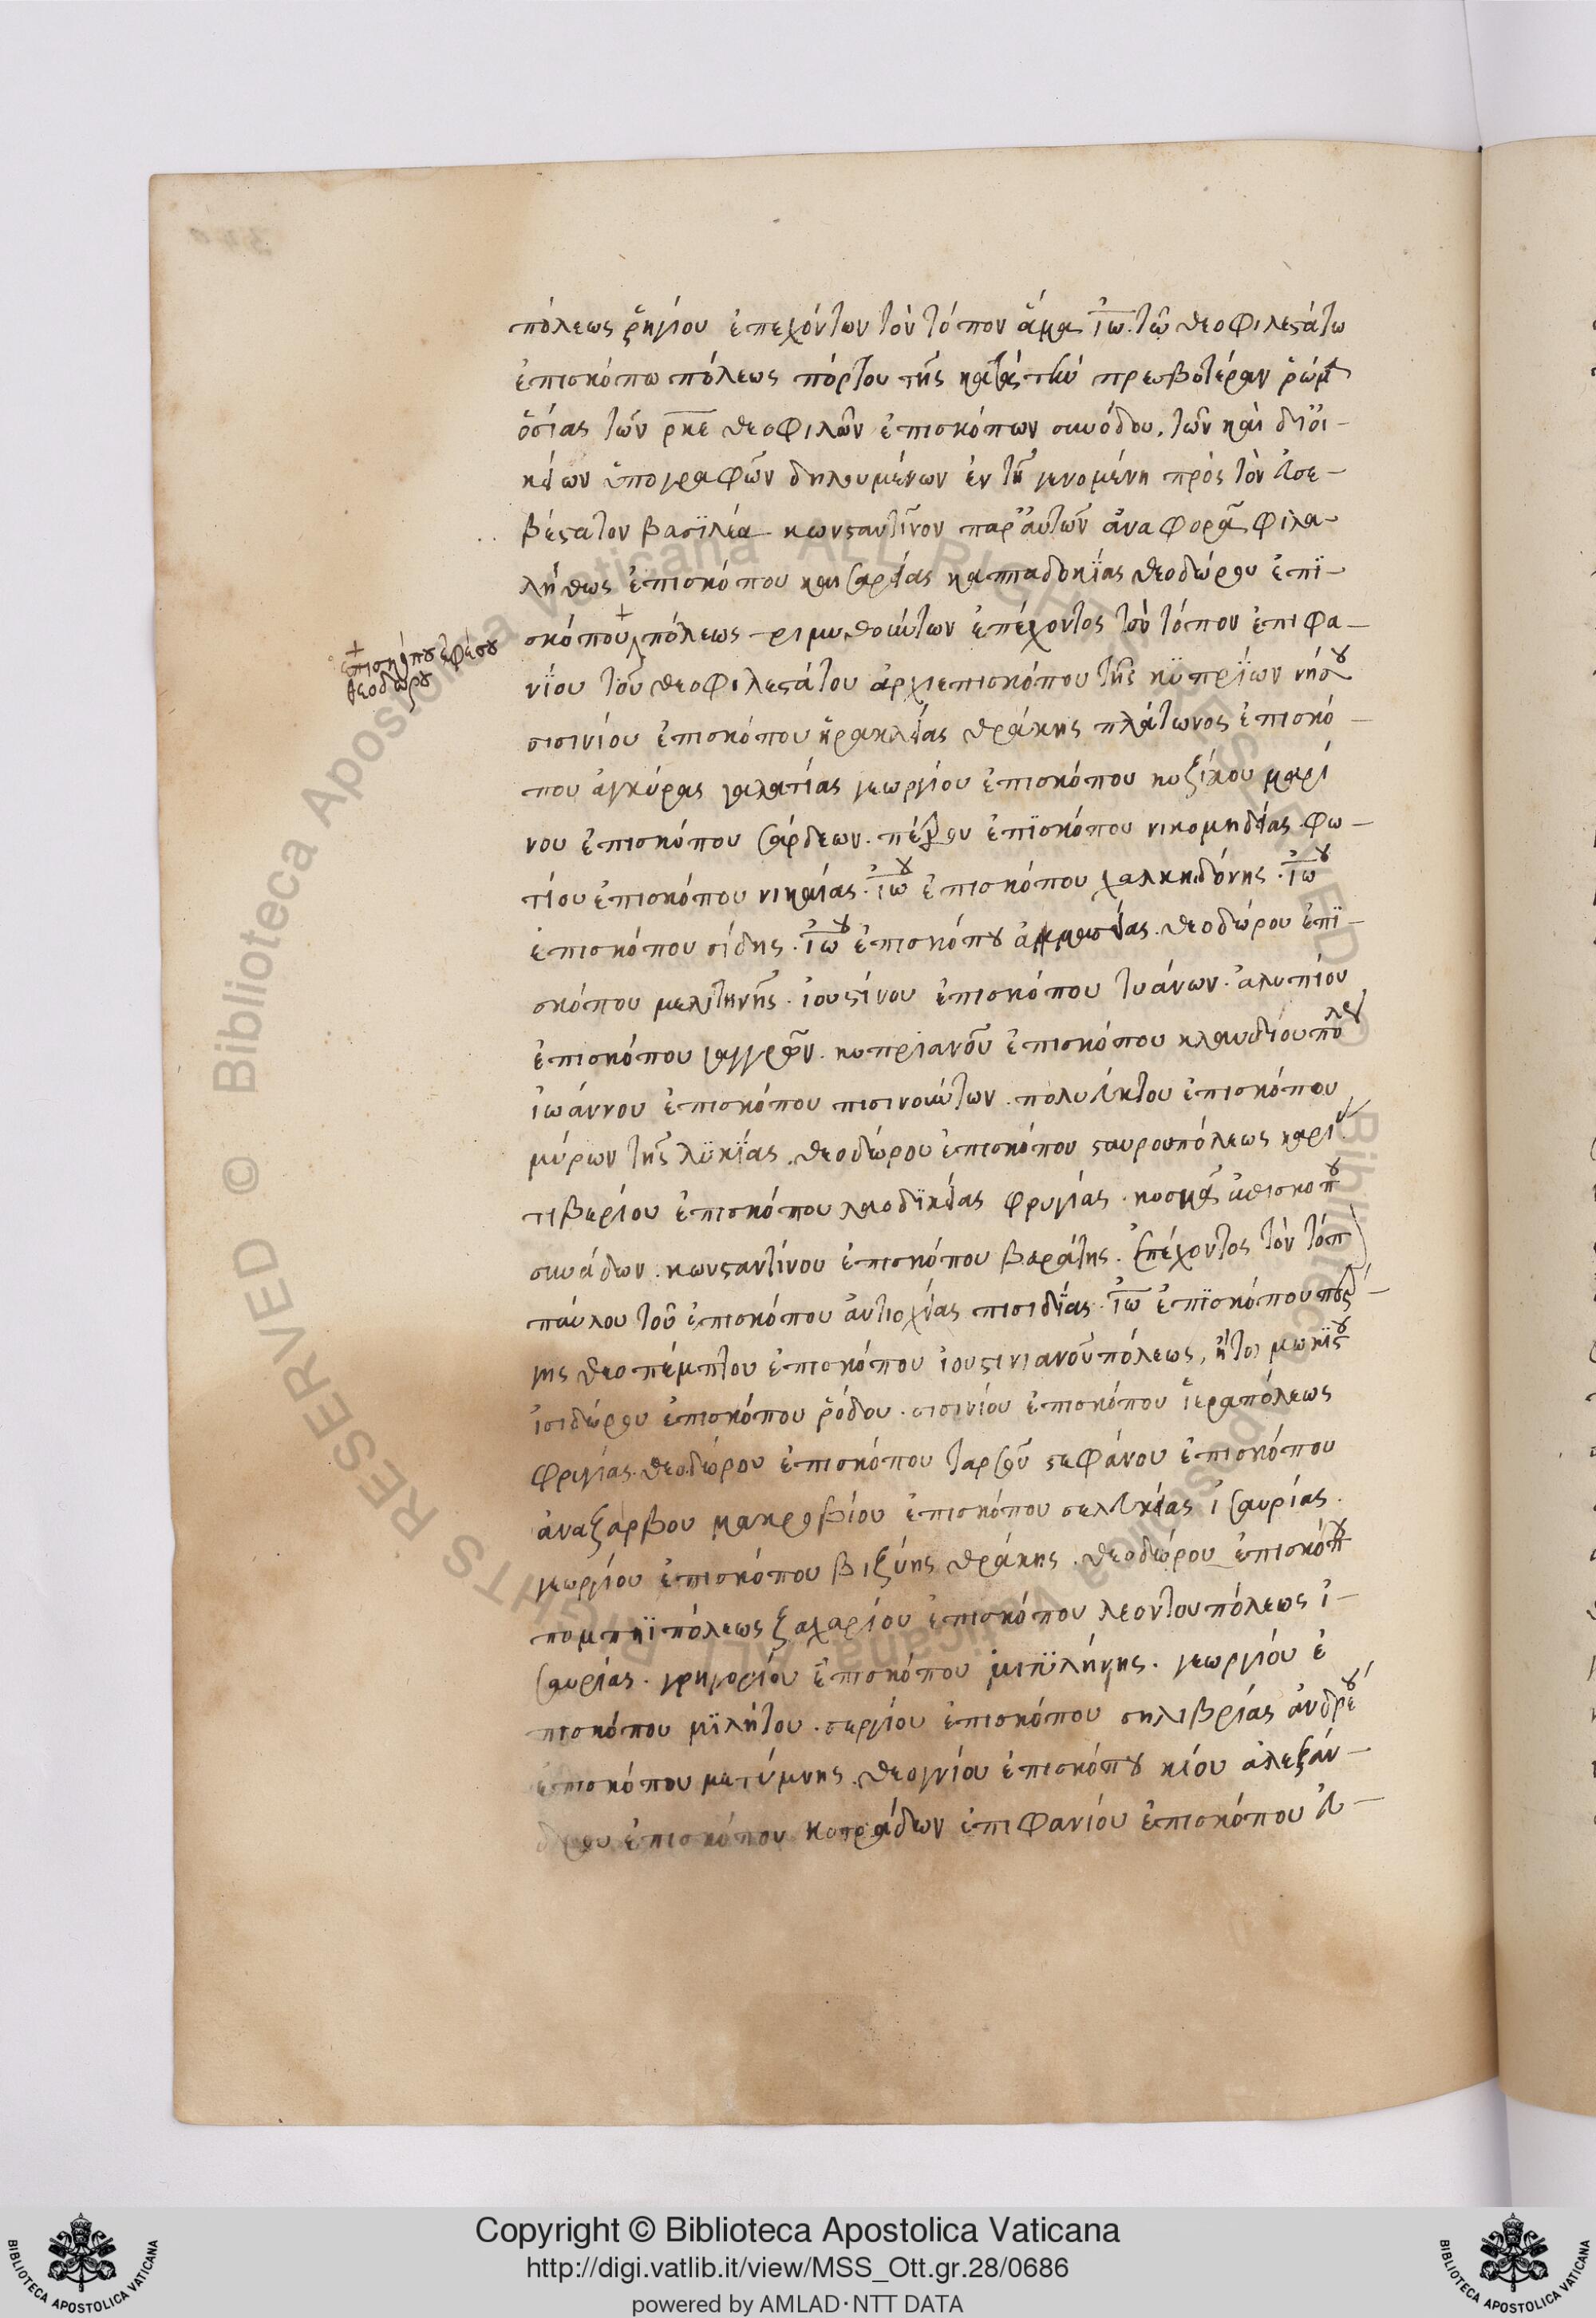 πόλεως ῥηγίου ἐπεχόντων τὸν τόπον ἅμα ἰω. τῶ θεοφιλεστάτω
ἐπισκόπω πόλεως πόρτου τῆς κατὰ τὴν πρεσβυτέραν ῥώμ
ὁσίας τῶν ρκε θεοφιλῶν ἐπισκόπων συνόδου. τῶν καὶ δι οἰ-
κείων ὑπογραφῶν δηλουμένων ἐν τῆ γενομένη πρὸς τὸν εὐσε-
βέστατον βασϊλέα κωνσταντῖνον παρ' αὐτῶν ἀναφορᾶ φιλα-
λήθως ἐπισκόπου καισαρείας καππαδοκΐας θεοδώρου ἐπϊ-
σκόπου πόλεως τριμυθούντων ἐπέχοντος τὸν τόπον ἐπιφα-
νΐου τοῦ θεοφιλεστάτου ἀρχιεπισκόπου τῆς κϋπρΐων νήσου
σισινίου ἐπισκόπου ἡρακλείας θράκης πλάτωνος ἐπισκό-
που ἀγκύρας γαλατίας γεωργίου ἐπισκόπου κυζίκου μαρί
νου ἐπισκόπου σάρδεων. πέτρου ἐπϊσκόπου νικομηδείας. φω-
τίου ἐπισκόπου νικαίας. ἰωου ἐπισκόπου χαλκηδόνης. ἰωου
ἐπισκόπου σίδης. ἰωου ἐπισκόπου ἀμασείας. θεοδώρου ἐπϊ-
σκόπου μελιτηνῆς. ἰουστίνου ἐπισκόπου τυάνων. ἀλυπίου
ἐπισκόπου γαγγρῶν. κυπριανοῦ ἐπισκόπου κλαυδίουπόλε
ἰωάννου ἐπισκόπου πισινούντων. πολυεύκτου ἐπισκόπου
μύρων τῆς λϋκΐας. θεοδώρου ἐπισκόπου σταυρουπόλεως καρί
τιβερίου ἐπισκόπου λαοδϊκείας φρυγίας. κοσμᾶ ἐπισκοπου
συνάδων. κωνσταντίνου ἐπισκόπου βαράτης. ἐπέχοντος τὸν τόπ
παύλου τοῦ ἐπισκόπου ἀντιοχείας πισιδΐας. ἰω ἐπϊσκόπου πέρ-
γης θεοπέμπτου ἐπισκόπου ἰουστινιανοῦπόλεως, ἤτοι μωκϊσου
ἰσιδώρου ἐπισκόπου ῥόδου. σισινίου ἐπισκόπου ἱεραπόλεως
φριγίας. θεοδώρου ἐπισκόπου ταρσοῦ στεφάνου ἐπισκόπου
ἀναζάρβου μακροβίου ἐπισκόπου σελευκείας ἰσαυρίας.
γεωργίου ἐπισκόπου βιζύης θράκης. θεοδώρου ἐπισκόπου
πομπηϊπόλεως ζαχαρίου ἐπισκόπου λεοντουπόλεως ἰ-
σαυρίας. γρηγορίου ἐπισκόπου μιτϋλήνης. γεωργίου ἐ
πισκόπου μϊλήτου. σεργίου ἐπισκόπου σηλιβρίας ἀνδρέου
ἐπισκόπου μετύμνης. θεογνίου ἐπισκόπου κίου ἀλεξάν-
δρου ἐπισκόπου κοτράδων ἐπιφανίου ἐπισκόπου εὐ-
ἐπισκόπου ἐφέσου
θεοδώρου
Copyright © Biblioteca Apostolica Vaticana
http://digi.vatlib.it/view/MSS_Ott.gr.28/0686
powered by AMLAD·NTT DATA
BIBLIOTECA APOSTOLICA VATICANA
BIBLIOTECA APOSTOLICA VATICANA